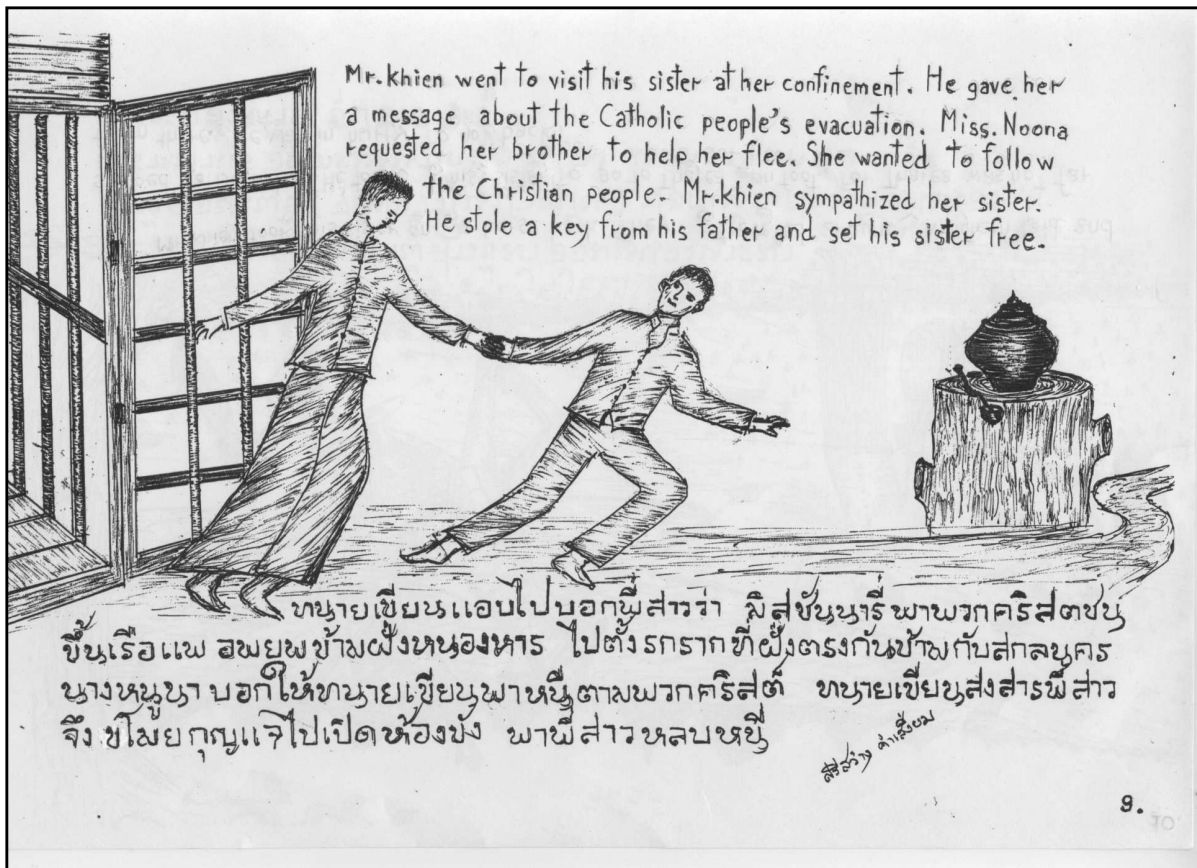 Mr.Khien went to visit his sister at her confinement. He gave her
a message about the Catholic people's evacuation. Miss. Noona
requested her brother to help her flee. She wanted to follow
the Christian people. Mr.Khien sympathized her sister.
He stole a key from his father and set his sister free.
ทนายเขียนแอบไปบอกพี่สาวว่า มิสชันนารีพาพวกคริสตชน
ขึ้นเรือแพ อพยพข้ามฝั่งหนองหาร ไปตั้งรกรากที่ฝั่งตรงกันข้ามกับสกลนคร
นางหนูนา บอกให้ทนายเขียนพาหนีตามพวกคริสต์ ทนายเขียนสงสารพี่สาว
จึงขโมยกุญแจไปเปิดห้องขัง พาพี่สาวหลบหนี
9.